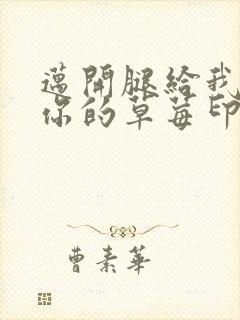 邁開腿給我
你的草莓印
曹素華